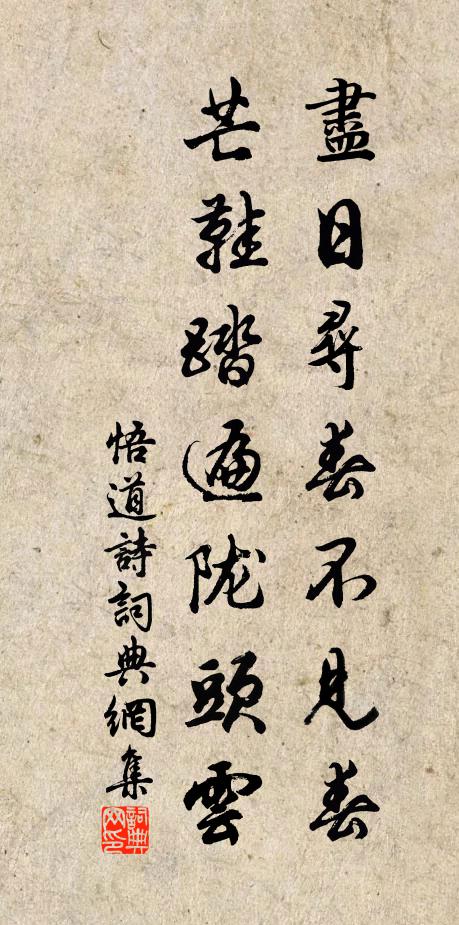 盡日尋春不見春
芒鞋踏遍陇頭雲
悟道詩詞典網集
詞典網印